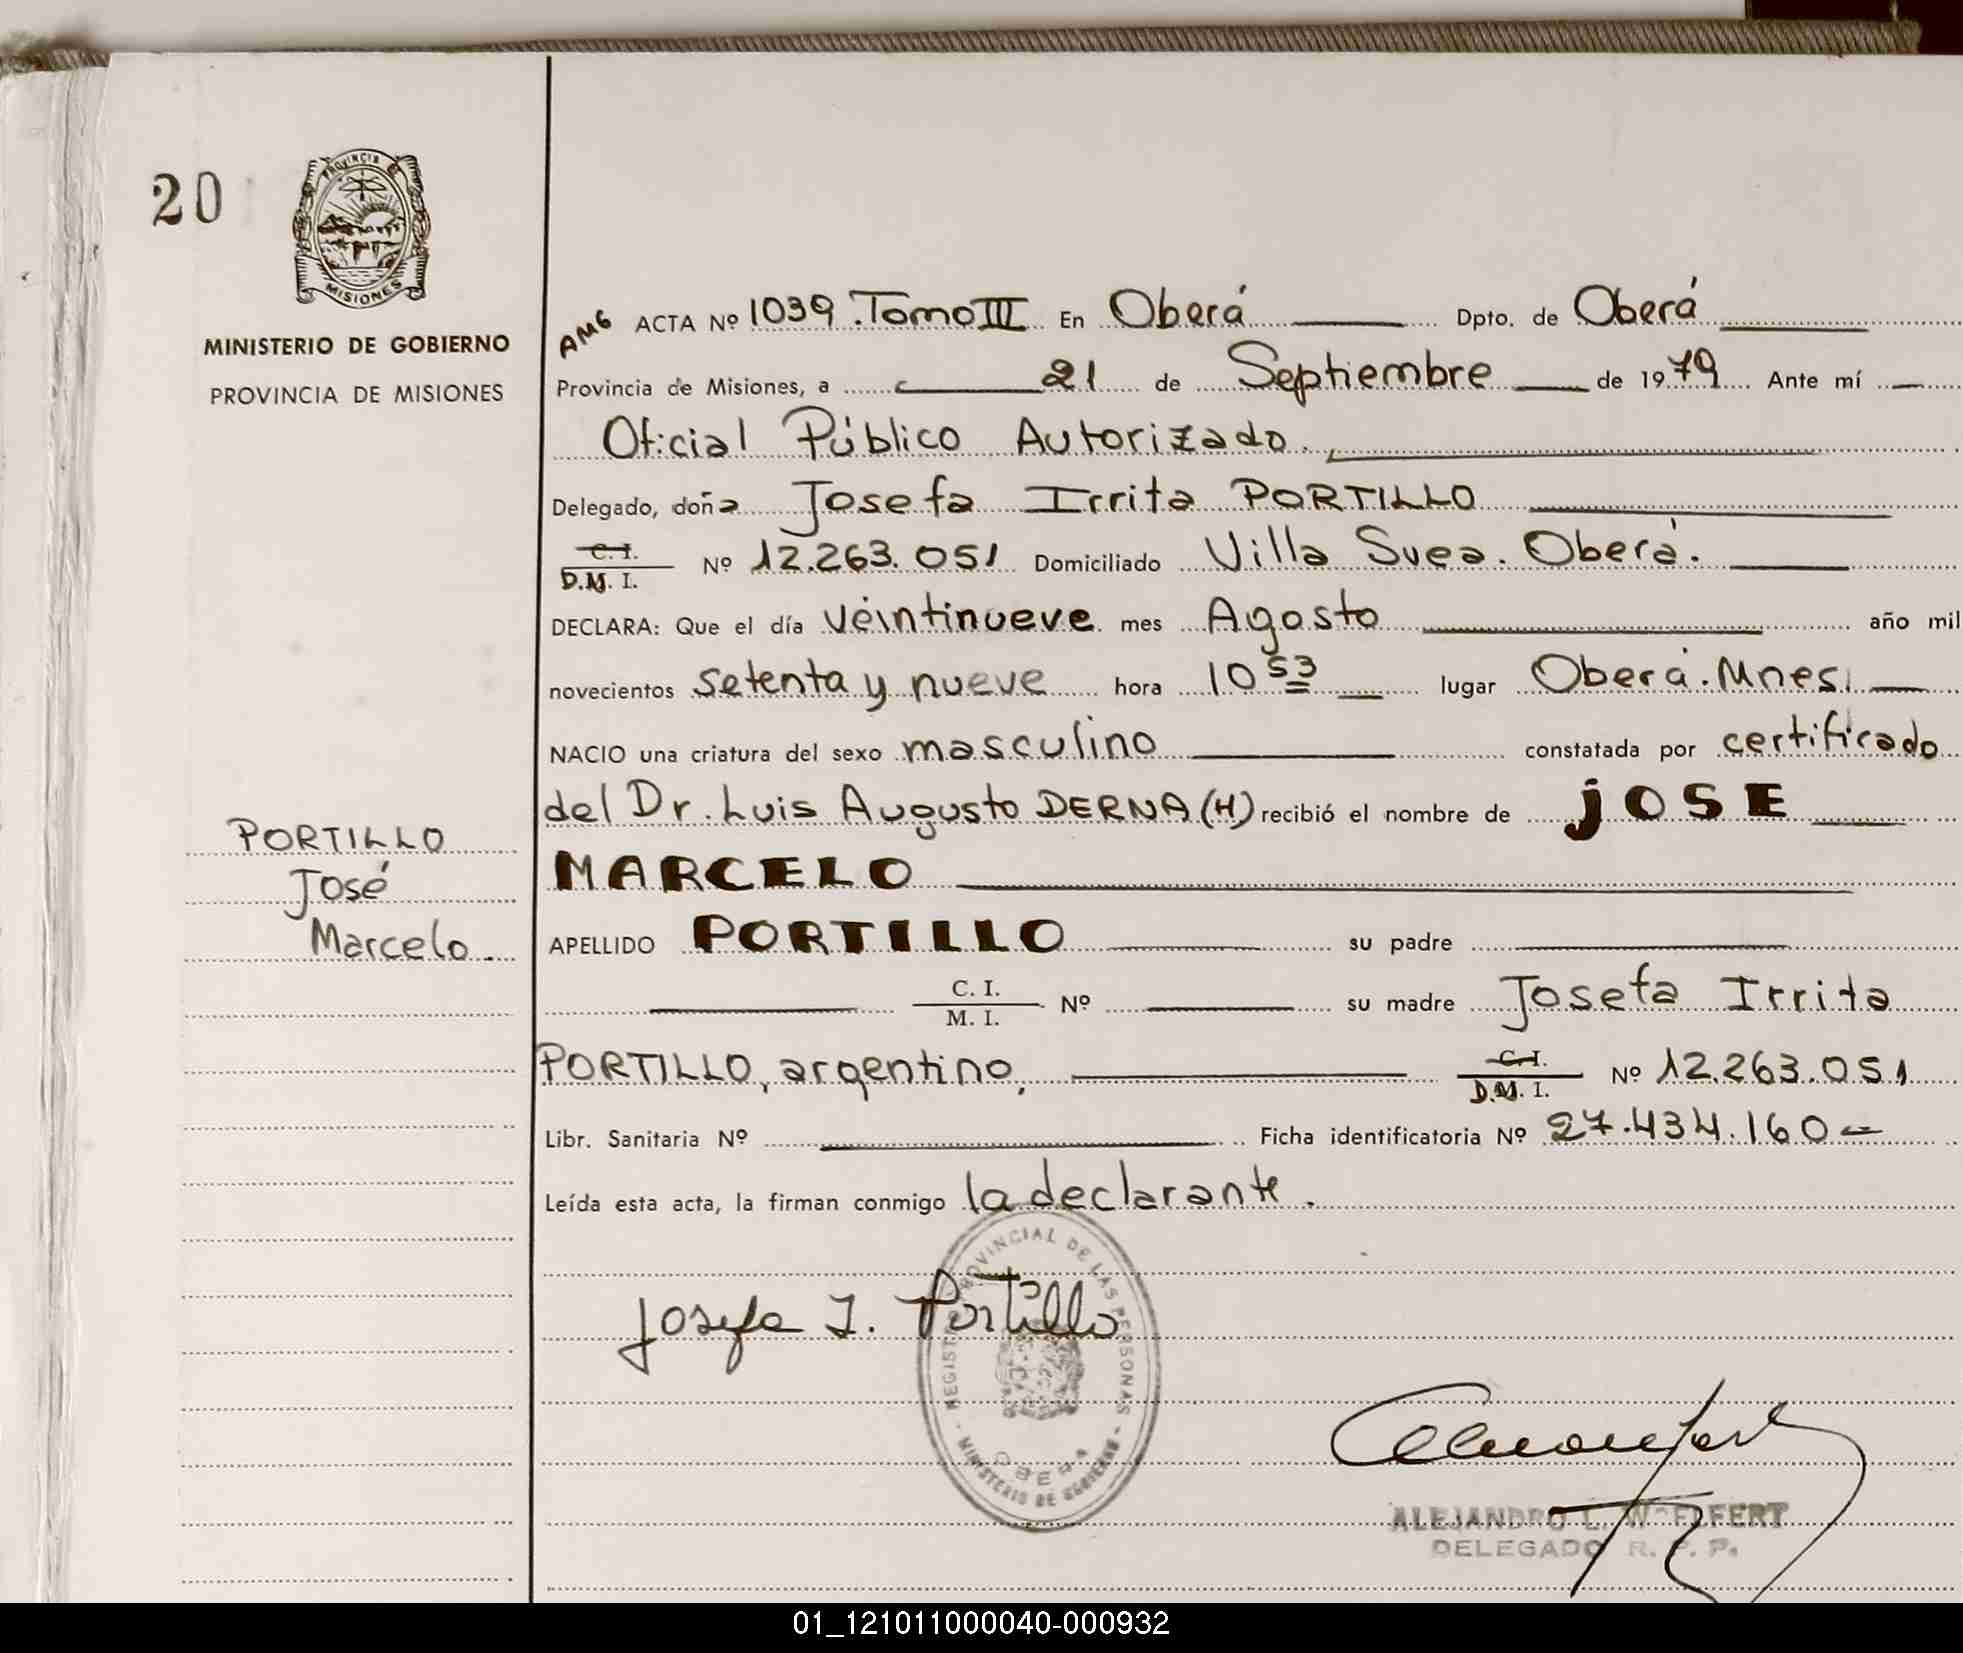 20
PROVINCIA
MISIONES
MINISTERIO DE GOBIERNO
PROVINCIA DE MISIONES
AMG ACTA Nº 1039 Tomo III En Oberá Dpto. de Oberá
Provincia de Misiones, a 21 de Septiembre de 1979 Ante mí
Oficial Público Autorizado.
Delegado, doña Josefa Irrita PORTILLO
C. I.
D.M. I. Nº 12.263.051 Domiciliado Villa Svea. Oberá.
DECLARA: Que el día veintinueve mes Agosto año mil
novecientos setenta y nueve hora 10 53 lugar Oberá. Mnes.
NACIO una criatura del sexo masculino constatada por certificado
del Dr. Luis Augusto DERNA (H) recibió el nombre de JOSE
MARCELO
PORTILLO
José
Marcelo.
APELLIDO PORTILLO su padre
C. I.
M. I. Nº su madre Josefa Irrita
PORTILLO, argentino, C. I.
D.M. I. Nº 12.263.051
Libr. Sanitaria Nº Ficha identificatoria Nº 27.434.160
Leída esta acta, la firman conmigo la declarante.
Josefa I. Portillo
REGISTRO PROVINCIAL DE LAS PERSONAS
OBERA
MINISTERIO DE GOBIERNO
ALEJANDRO L. WOELFERT
DELEGADO R. P. P.
01_121011000040-000932